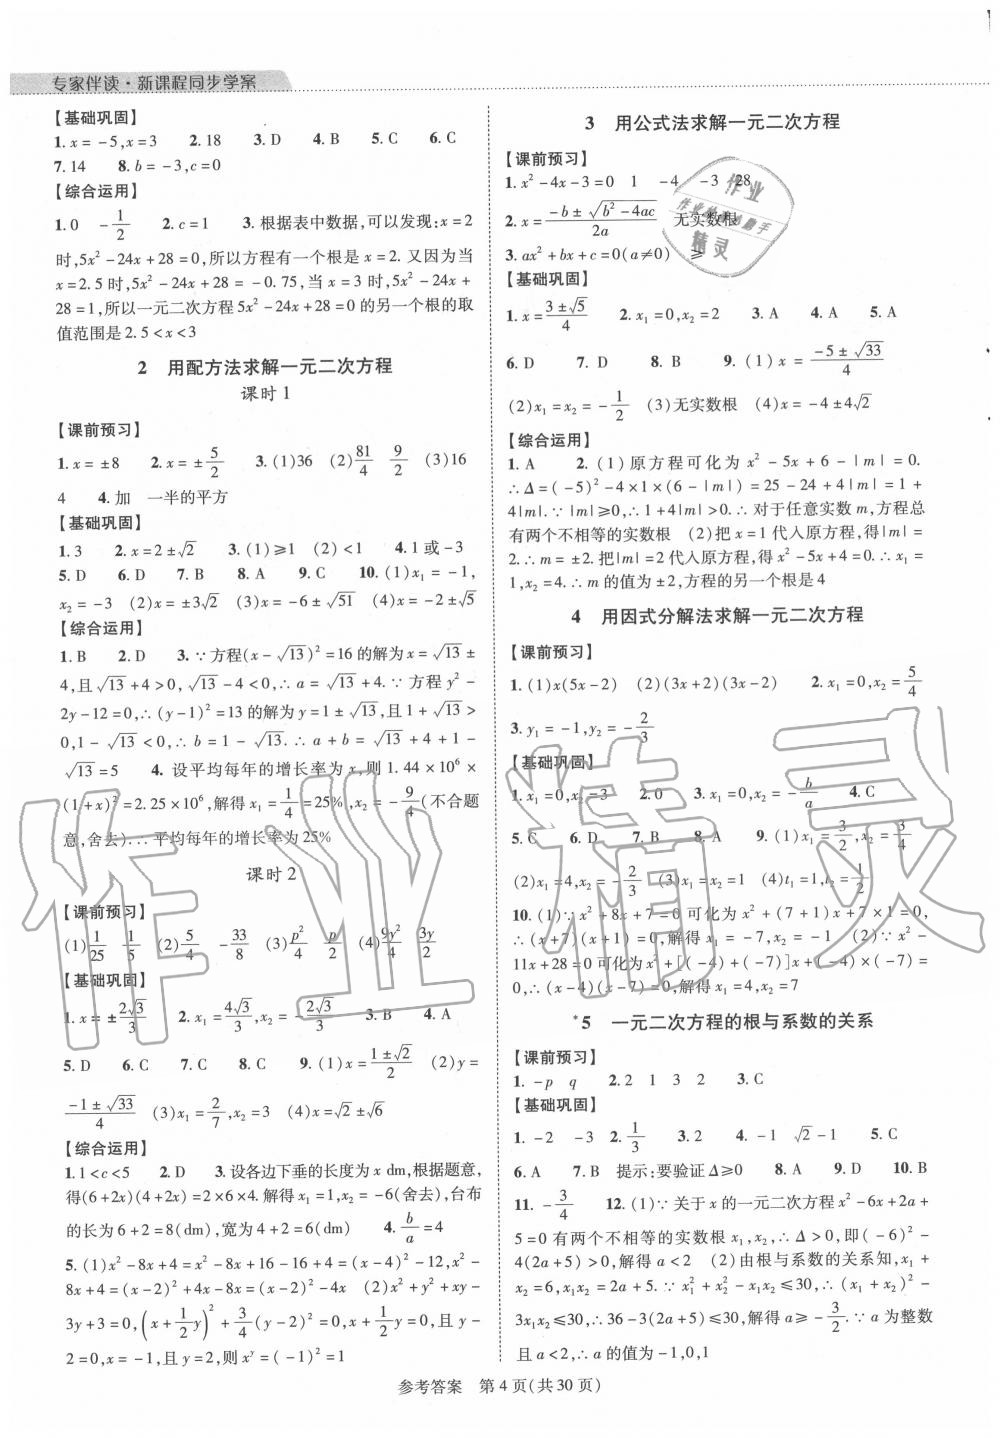 专家伴读·新课程同步学案
【基础巩固】
1. x = -5, x = 3  2. 18  3. D  4. B  5. C  6. C
7. 14  8. b = -3, c = 0
【综合运用】
1. 0  -1/2  2. c = 1  3. 根据表中数据,可以发现: x = 2
时, 5x² - 24x + 28 = 0, 所以方程有一个根是 x = 2. 又因为当
x = 2.5 时, 5x² - 24x + 28 = -0.75, 当 x = 3 时, 5x² - 24x +
28 = 1, 所以一元二次方程 5x² - 24x + 28 = 0 的另一个根的取
值范围是 2.5 < x < 3
2 用配方法求解一元二次方程
课时 1
【课前预习】
1. x = ±8  2. x = ±5/2  3. (1)36  (2)81/4  9/2  (3)16
4  4. 加  一半的平方
【基础巩固】
1. 3  2. x = 2 ± √2  3. (1) ≥1  (2) <1  4. 1 或 -3
5. D  6. D  7. B  8. A  9. C  10. (1)x₁ = -1,
x₂ = -3  (2)x = ±3√2  (3)x = -6 ± √51  (4)x = -2 ± √5
【综合运用】
1. B  2. D  3. ∵ 方程(x - √13)² = 16 的解为 x = √13 ±
4, 且 √13 + 4 > 0, √13 - 4 < 0, ∴ a = √13 + 4. ∵ 方程 y² -
2y - 12 = 0, ∴ (y - 1)² = 13 的解为 y = 1 ± √13, 且 1 + √13 >
0, 1 - √13 < 0, ∴ b = 1 - √13. ∴ a + b = √13 + 4 + 1 -
√13 = 5  4. 设平均每年的增长率为 x, 则 1.44 × 10⁶ ×
(1 + x)² = 2.25 × 10⁶, 解得 x₁ = 1/4 = 25%, x₂ = -9/4(不合题
意,舍去). ∴ 平均每年的增长率为 25%
课时 2
【课前预习】
(1)1/25  1/5  (2)5/4  -33/8  (3)p²/4  p/2  (4)9y²/4  3y/2
【基础巩固】
1. x = ±2√3/3  2. x₁ = 4√3/3, x₂ = -2√3/3  3. B  4. A
5. D  6. C  7. C  8. C  9. (1)x = (1 ± √2)/2  (2)y =
(-1 ± √33)/4  (3)x₁ = 2/7, x₂ = 3  (4)x = √2 ± √6
【综合运用】
1. 1 < c < 5  2. D  3. 设各边下垂的长度为 x dm, 根据题意,
得(6 + 2x)(4 + 2x) = 2 × 6 × 4. 解得 x₁ = 1, x₂ = -6(舍去), 台布
的长为 6 + 2 = 8(dm), 宽为 4 + 2 = 6(dm)  4. b/a = 4
5. (1)x² - 8x + 4 = x² - 8x + 16 - 16 + 4 = (x - 4)² - 12, x² -
8x + 4 = (x - 2)² + 4x - 8x = (x - 2)² - 4x  (2)x² + y² + xy -
3y + 3 = 0, (x + 1/2 y)² + 3/4(y - 2)² = 0, x + 1/2 y = 0, 且 y -
2 = 0, x = -1, 且 y = 2, 则 xʸ = (-1)² = 1
3 用公式法求解一元二次方程
【课前预习】
1. x² - 4x - 3 = 0  1  -4  -3  28
2. x = (-b ± √(b² - 4ac))/2a  无实数根
3. ax² + bx + c = 0(a ≠ 0)  ≥
【基础巩固】
1. x = (3 ± √5)/4  2. x₁ = 0, x₂ = 2  3. A  4. A  5. A
6. D  7. D  8. B  9. (1) x = (-5 ± √33)/4
(2)x₁ = x₂ = -1/2  (3)无实数根  (4)x = -4 ± 4√2
【综合运用】
1. A  2. (1) 原方程可化为 x² - 5x + 6 - |m| = 0.
∴ Δ = (-5)² - 4 × 1 × (6 - |m|) = 25 - 24 + 4|m| = 1 +
4|m|. ∵ |m| ≥ 0, ∴ 1 + 4|m| > 0. ∴ 对于任意实数 m, 方程总
有两个不相等的实数根  (2)把 x = 1 代入原方程, 得|m| =
2. ∴ m = ±2. 把|m| = 2 代入原方程, 得 x² - 5x + 4 = 0. ∴ x₁ =
1, x₂ = 4. ∴ m 的值为 ±2, 方程的另一个根是 4
4 用因式分解法求解一元二次方程
【课前预习】
1. (1)x(5x - 2)  (2)(3x + 2)(3x - 2)  2. x₁ = 0, x₂ = 5/4
3. y₁ = -1, y₂ = -2/3
【基础巩固】
1. x₁ = 0, x₂ = 3  2. 0  3. x₁ = 0, x₂ = -b/a  4. C
5. C  6. D  7. B  8. A  9. (1)x₁ = 3/2, x₂ = 3/4
(2)x₁ = 4, x₂ = -2/3  (3)x₁ = x₂ = 1  (4)t₁ = 1, t₂ = 1/2
10. (1)∵ x² + 8x + 7 = 0 可化为 x² + (7 + 1)x + 7 × 1 = 0,
∴ (x + 7)(x + 1) = 0, 解得 x₁ = -7, x₂ = -1  (2)∵ x² -
11x + 28 = 0 可化为 x² + [(-4) + (-7)]x + (-4) × (-7) =
0, ∴ (x - 4)(x - 7) = 0, 解得 x₁ = 4, x₂ = 7
*5 一元二次方程的根与系数的关系
【课前预习】
1. -p  q  2. 2  1  3  2  3. C
【基础巩固】
1. -2  -3  2. 1/3  3. 2  4. -1  √2 - 1  5. C
6. A  7. B  提示:要验证 Δ ≥ 0  8. A  9. D  10. B
11. -3/4  12. (1)∵ 关于 x 的一元二次方程 x² - 6x + 2a +
5 = 0 有两个不相等的实数根 x₁, x₂, ∴ Δ > 0, 即(-6)² -
4(2a + 5) > 0, 解得 a < 2  (2)由根与系数的关系知, x₁ +
x₂ = 6, x₁x₂ = 2a + 5. ∵ x₁² + x₂² - x₁x₂ ≤ 30, ∴ (x₁ + x₂)² -
3x₁x₂ ≤ 30, ∴ 36 - 3(2a + 5) ≤ 30, 解得 a ≥ -3/2. ∵ a 为整数
且 a < 2, ∴ a 的值为 -1, 0, 1
参考答案 第 4 页(共 30 页)
作业精灵
作业
精灵